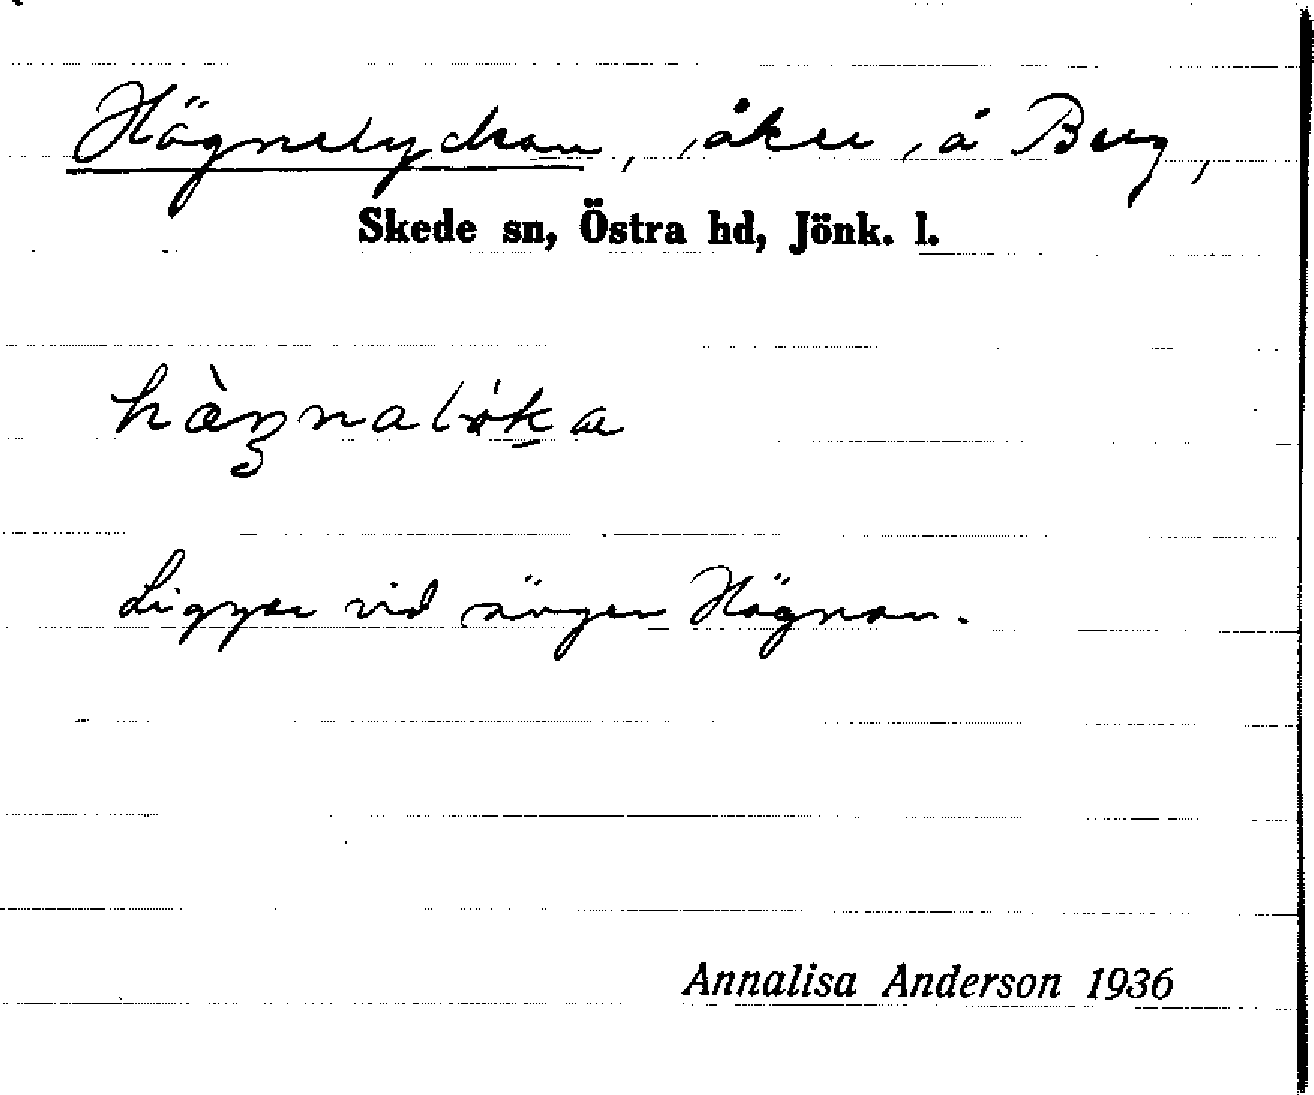 Hägnelyckan, åker, å Berg,
Skede sn, Östra hd, Jönk. l.
Ligger vid ängen Hägnan.
Annalisa Anderson 1936